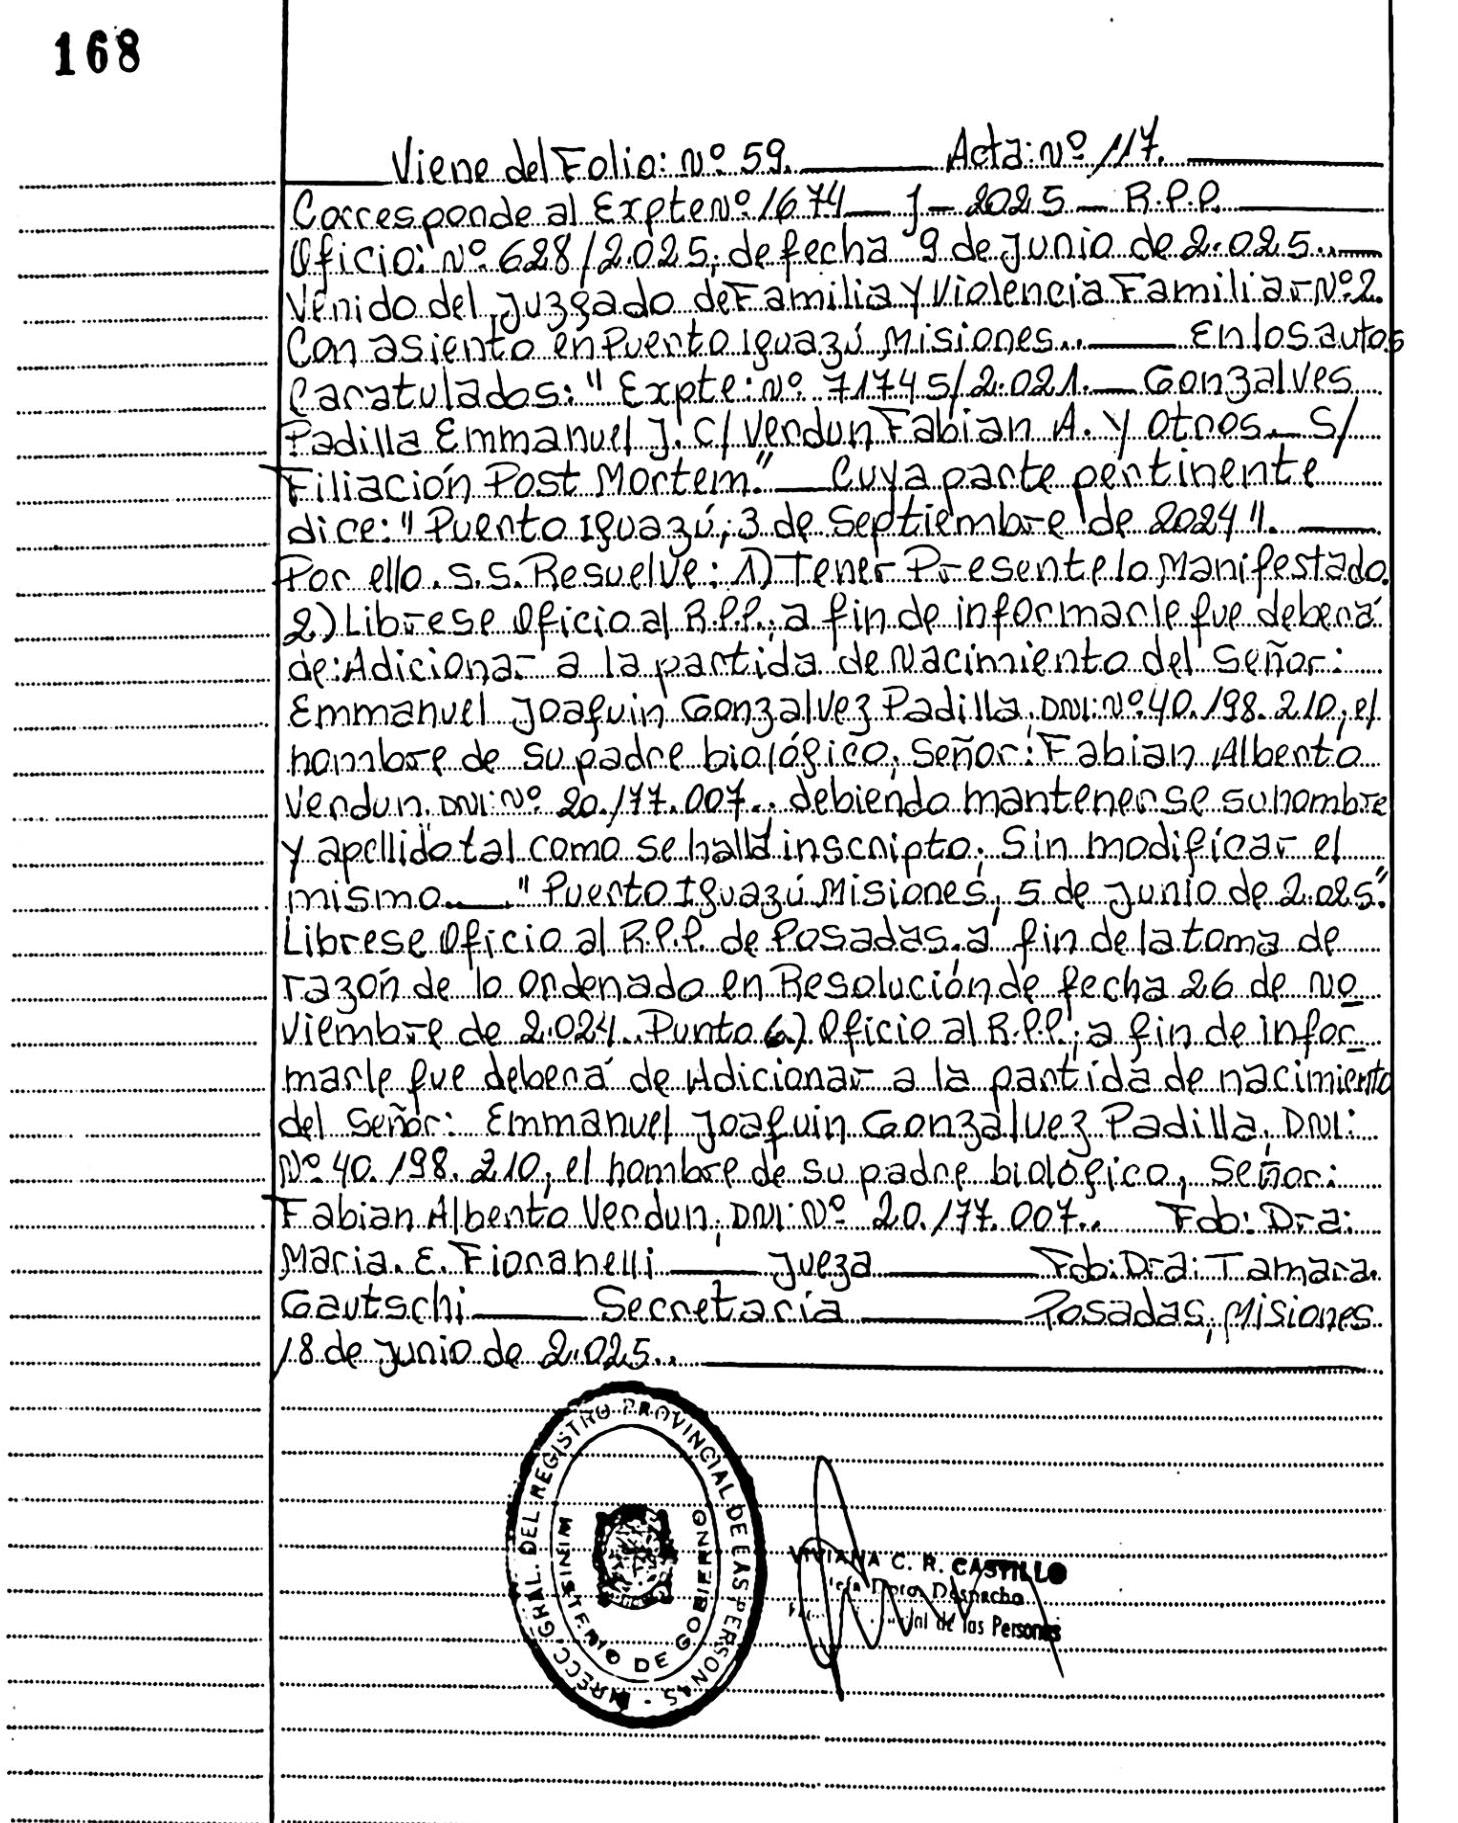 168
Viene del Folio: Nº 59. Acta: Nº 117.
Corresponde al Expte Nº 1674 - J - 2025 - R.P.P.
Oficio: Nº 628/2.025, de fecha 9 de Junio de 2.025..
Venido del Juzgado de Familia y Violencia Familiar Nº 2.
Con asiento en Puerto Iguazú Misiones.. En los autos
Caratulados: "Expte: Nº 71745/2.021. Gonzalves
Padilla Emmanuel J. C/ Verdun Fabian A. y Otros. S/
Filiación Post Mortem" Cuya parte pertinente
dice: "Puerto Iguazú, 3 de Septiembre de 2024".
Por ello. S.S. Resuelve: 1) Tener Presente lo Manifestado.
2) Librese Oficio al R.P.P., a fin de informarle que deberá
de: Adicionar a la partida de Nacimiento del Señor:
Emmanuel Joaquin Gonzalvez Padilla, DNI: Nº 40.198.210, el
hombre de su padre biológico, Señor: Fabian Alberto
Verdun. DNI: Nº 20.177.007.. debiendo mantenerse su nombre
y apellido tal como se halla inscripto, Sin modificar el
mismo. "Puerto Iguazú Misiones, 5 de Junio de 2.025".
Librese Oficio al R.P.P. de Posadas, a fin de la toma de
razón de lo ordenado en Resolución de fecha 26 de No
viembre de 2.024. Punto 6) Oficio al R.P.P., a fin de infor_
marle que deberá de Adicionar a la partida de nacimiento
del Señor: Emmanuel Joaquin Gonzalvez Padilla, DNI:
Nº 40.198.210, el hombre de su padre biológico, Señor:
Fabian Alberto Verdun, DNI: Nº 20.177.007.. Fdo: Dra:
Maria. E. Fioranelli Jueza Fdo: Dra: Tamara.
Gautschi Secretaria Posadas, Misiones
18 de Junio de 2.025..
DIRECC. GRAL. DEL REGISTRO PROVINCIAL DE LAS PERSONAS -
MINISTERIO DE GOBIERNO
VIVIANA C. R. CASTILLO
Jefa Dpto. Despacho
de las Personas